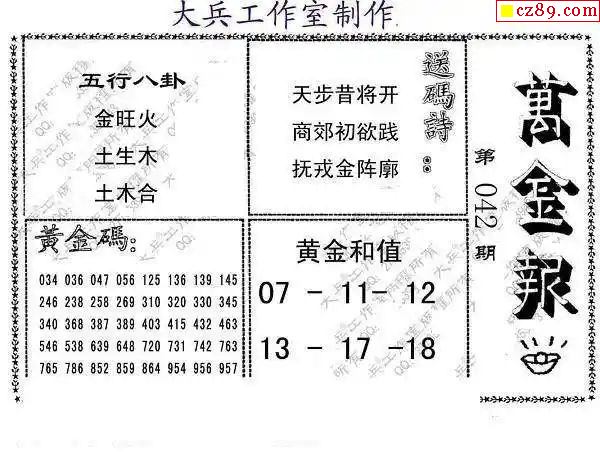 大兵工作室制作
cz89.com
五行八卦
金旺火
土生木
土木合
送碼詩：
天步昔将开
商郊初欲践
抚戎金阵廓
萬金報
第042期
黃金碼：
034 036 047 056 125 136 139 145
246 238 258 269 310 320 330 345
340 368 387 389 403 415 432 463
546 538 639 648 720 731 742 763
765 786 852 859 864 954 956 957
黄金和值
07 - 11- 12
13 - 17 -18